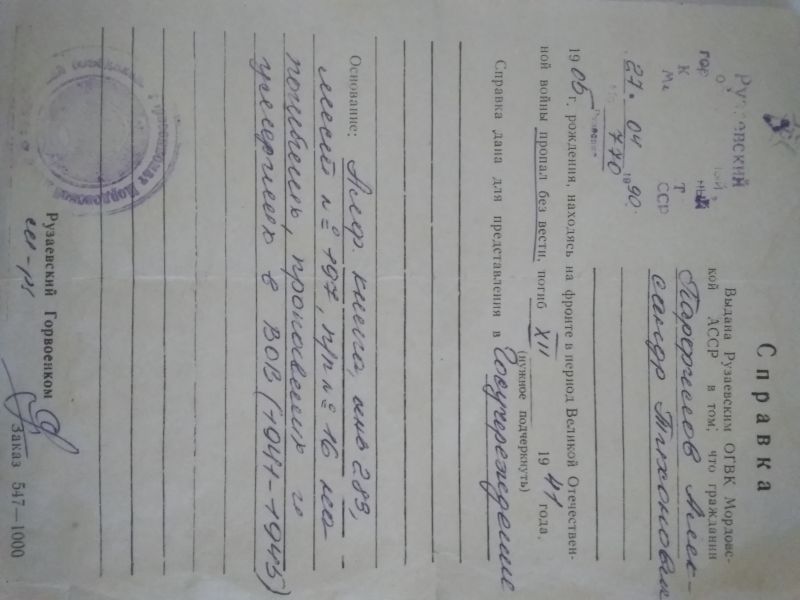 Рузаевский
гор
К
М Т
ССР
27. 04 1990.
770
Справка
Выдана Рузаевским ОГВК Мордовс-
кой АССР в том, что гражданин
Парфенов Алек-
сандр Тихонович
1905 г. рождения, находясь на фронте в период Великой Отечествен-
ной войны пропал без вести, погиб XII 1941 года.
(нужное подчеркнуть)
Справка дана для представления в Госучереждение
Основание: Алф. книга, инв 289,
лист № 197, пр № 16
погибших, пропавших и
умерших в ВОВ (1941-1945)
Рузаевский Горвоенком
Заказ 547—1000